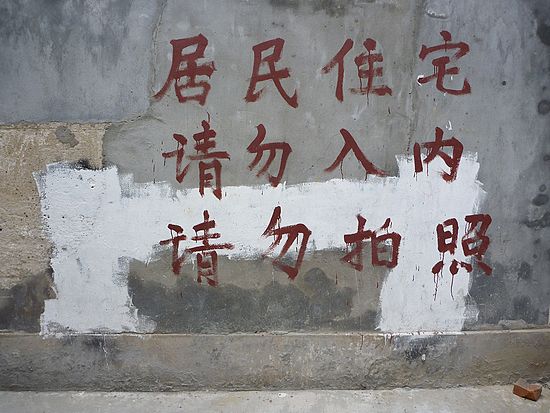 居民住宅
请勿入内
请勿拍照